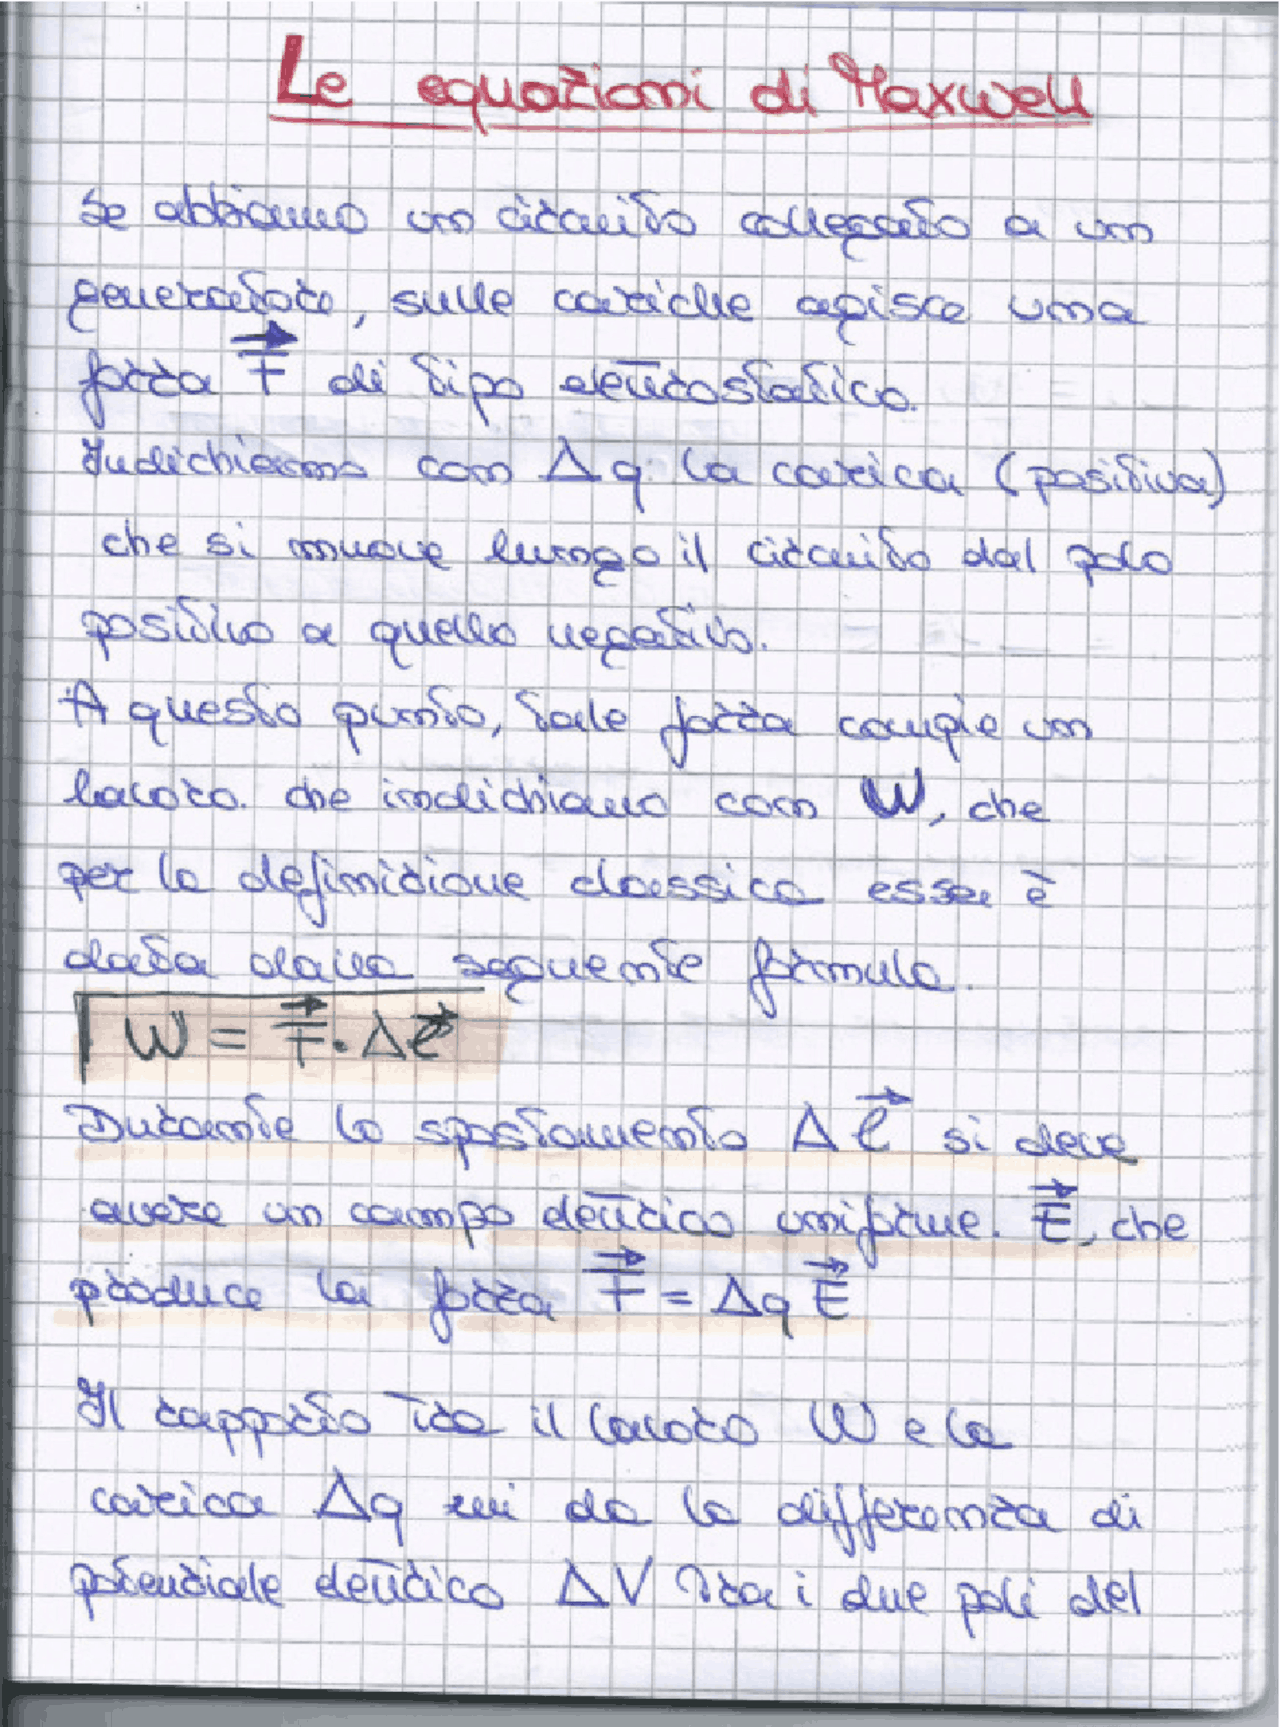 Le equazioni di Maxwell
Se abbiamo un circuito collegato a un
generatore, sulle cariche agisce una
forza F di tipo elettrostatico.
Indichiamo con Δq la carica (positiva)
che si muove lungo il circuito dal polo
positivo a quello negativo.
A questo punto, tale forza compie un
lavoro. che indichiamo con W, che
per la definizione classica essa è
data dalla seguente formula.
W = F⃗ · Δl⃗
Durante lo spostamento Δ l⃗ si deve
avere un campo elettrico uniforme. E⃗, che
produce la forza F⃗ = Δq E⃗
Il rapporto tra il lavoro W e la
carica Δq mi da la differenza di
potenziale elettrico ΔV tra i due poli del